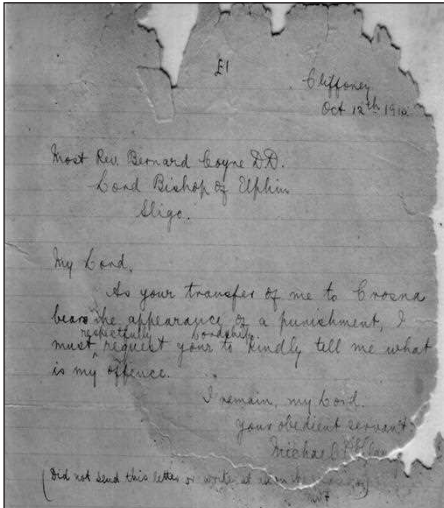 £1
Cliffoney
Oct 12th 191
Most Rev. Bernard Coyne D.D.
Lord Bishop of Elphin
Sligo.
My Lord,
As your transfer of me to Crosna
bears the appearance of a punishment, I
respectfully Lordship
must request your to kindly tell me what
is my offence.
I remain, my Lord.
your obedient servant
Michael
(Did not send this letter or write